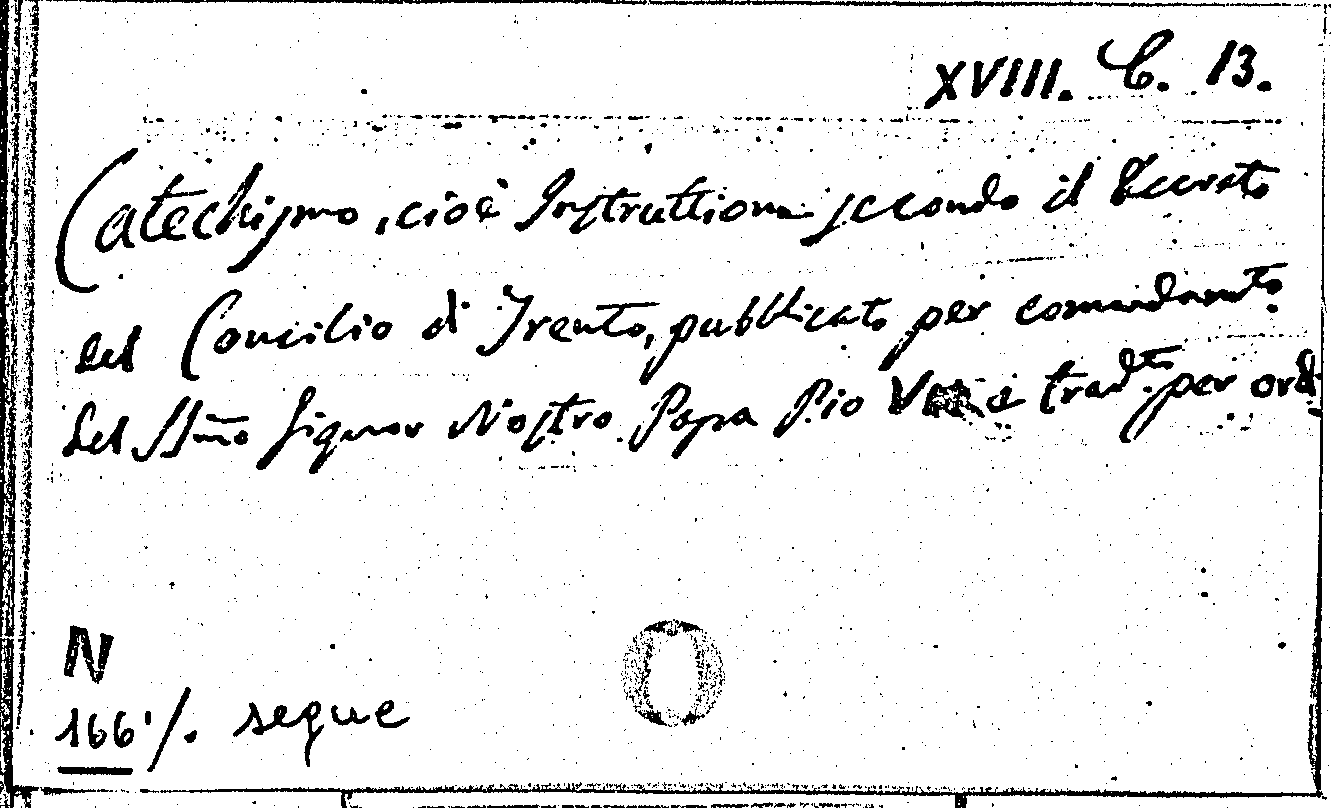 XVIII. C. 13.
Catechismo, cioè Instruttione secondo il Decreto
del Concilio di Trento, pubblicato per comandamto
del SSmo Signor Nostro Papa Pio V e tradto per ord.
N
166'/. segue